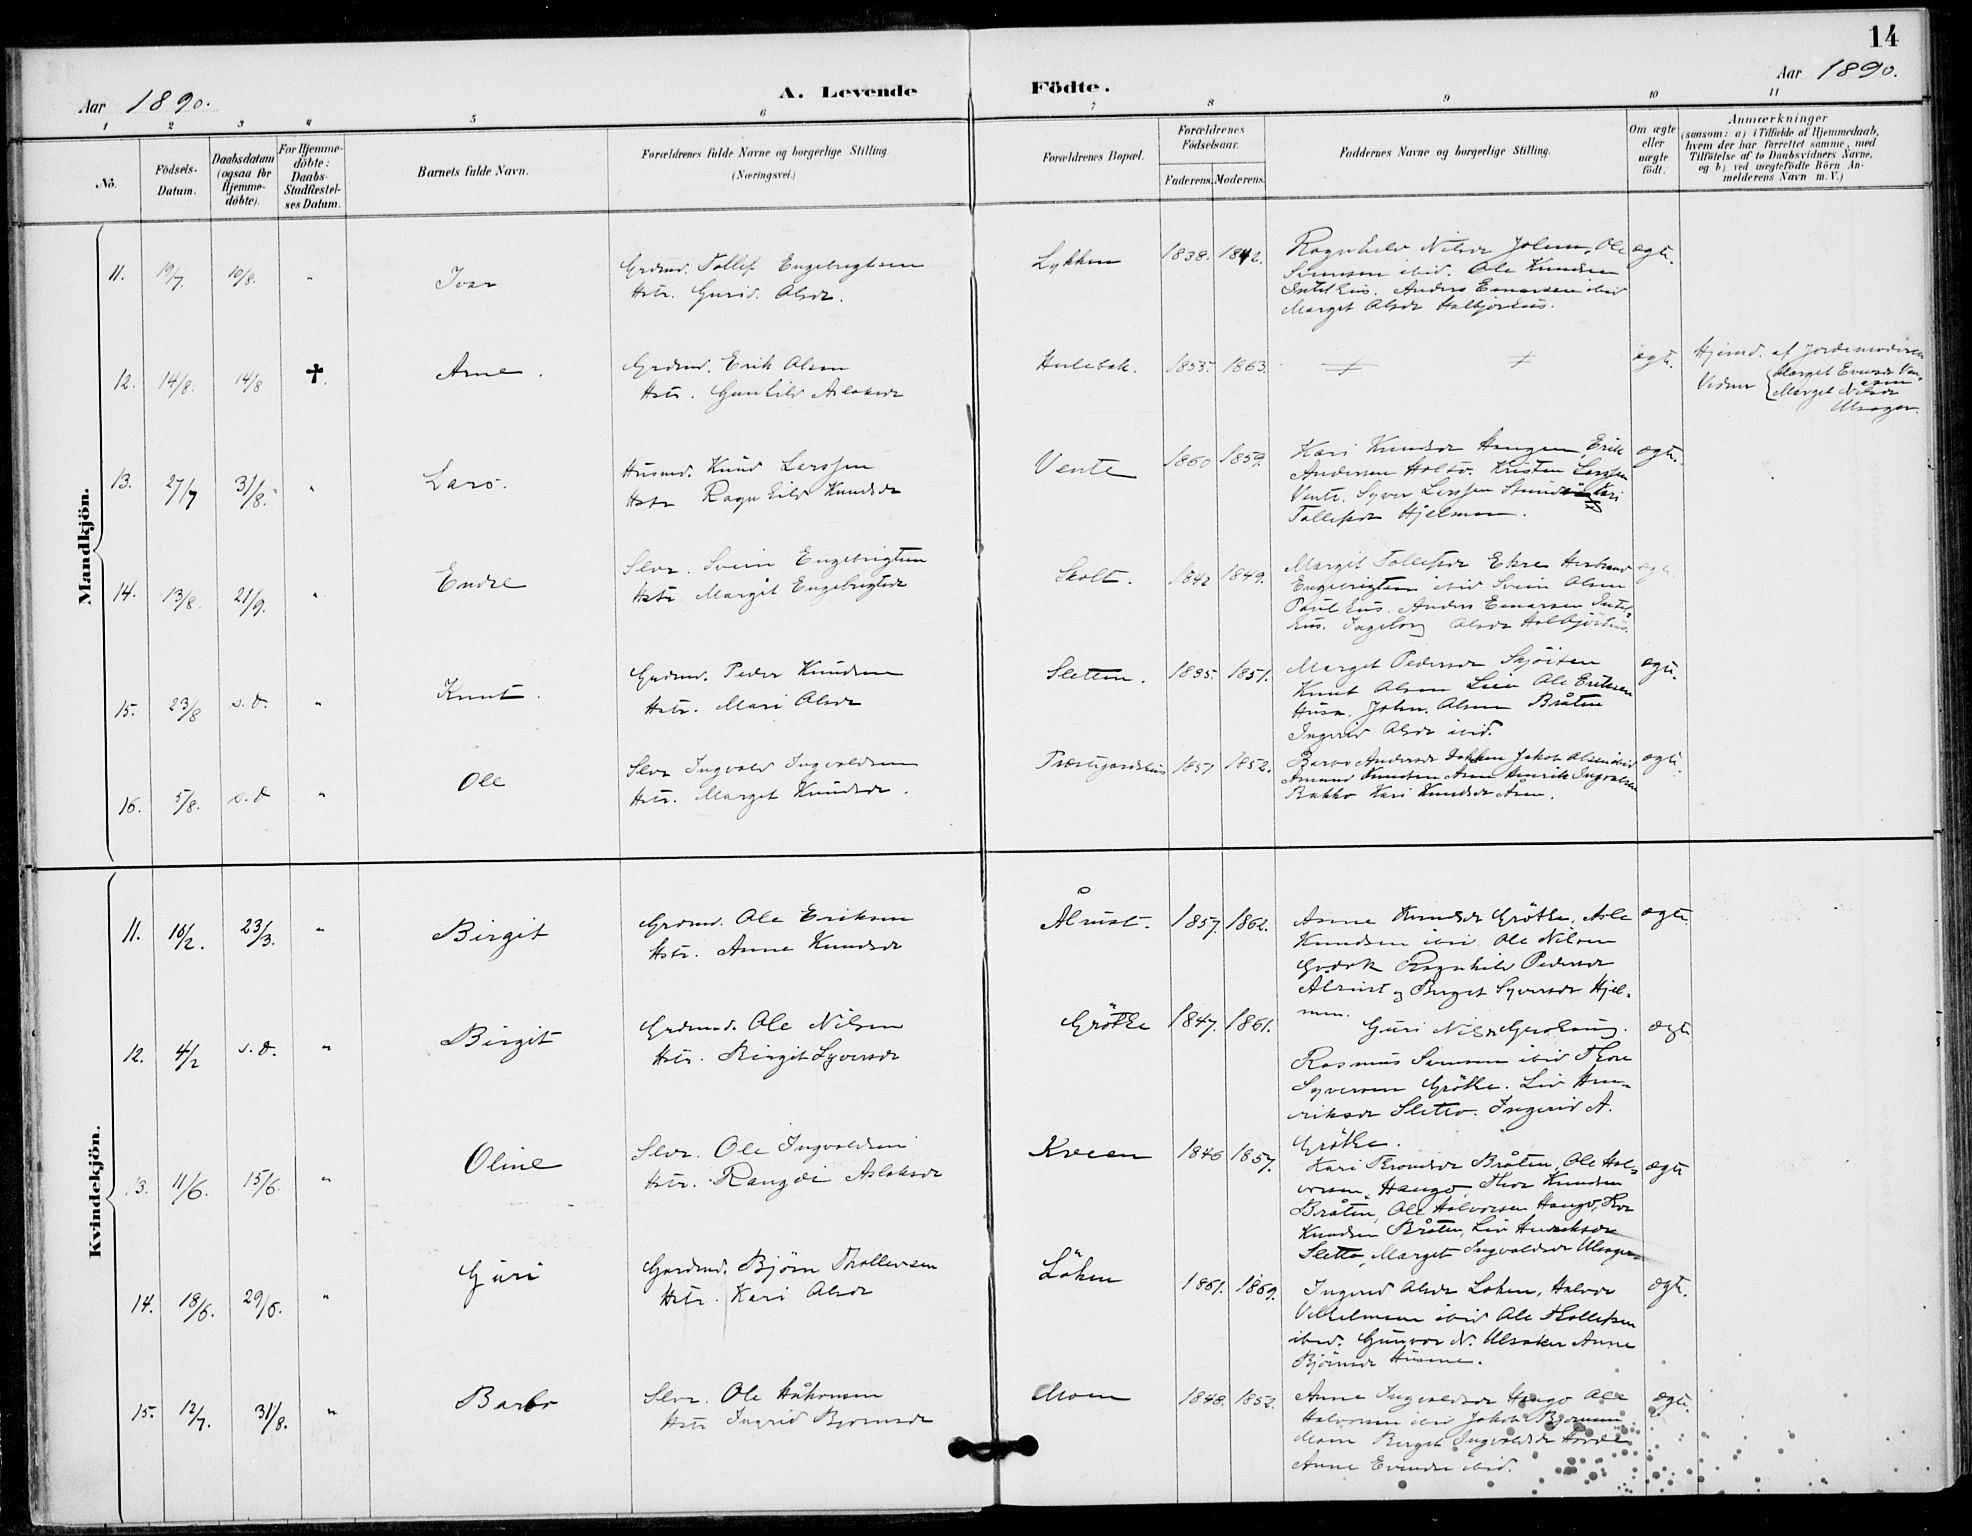 14
Aar 1890.
A. Levende Födte.
Aar 1890.
1 2 3 4 5 6 7 8 9 10 11
No.
Födsels-Datum.
Daabsdatum (ogsaa for Hjemme-döbte).
For Hjemme-döbte: Daabs-Stadfæstel-ses Datum.
Barnets fulde Navn.
Forældrenes fulde Navne og borgerlige Stilling.
(Næringsvei.)
Forældrenes Bopæl.
Forældrenes Födselsaar.
Faderens. Moderens.
Faddernes Navne og borgerlige Stilling.
Om ægte eller uægte födt.
Anmærkninger
(saasom: a) i Tilfælde af Hjemmedaab,
hvem der har forrettet samme, med
Tilföielse af to Daabsvidners Navne,
og b) ved uægtefödte Börn An-
melderens Navn m. V.)
Mandkjön.
11. 19/7. 10/8. " Ivar
Grdmd. Tollef Engebregtsen
Hstr. Gurid Olsdr.
Lykken 1838. 1842.
Ragnhild Nilsdr Ole
Svensen ibid. Ole Knudsen
Anders Einarsen ibid
Marget Olsdr
ægte.
12. 14/8. 14/8 †. Arne.
Grdmd. Erik Olsen
Hstr. Gunhild Aslaksdr
Hulebak. 1855. 1863.
ægte.
Hjemd. af Jordemoderen
Vidner Marget
Marget Nilsdr
Ulsager.
13. 27/7 31/8. " Lars.
Husmd. Knud Larssen
Hstr Ragnhild Knudsdr
Vente 1860 1859.
Kari Knudsdr Haugen Erik
Andersen Holto. Kristen Larssen
Vente. Syver Larssen Kari
Tollefsdr Hjelmen.
ægte.
14. 13/8. 21/9. " Endre
Slvr. Svein Engebrigtsen
Hstr Margit Engebrigtsdr
Skolt. 1842 1849.
Margit Tollefsdr Ekre Herbrand
Engebrigtsen ibid Svein Olsen
Anders Einarsen
Ingeborg Olsdr
ægte.
15. 23/8 s.d. " Knut.
Grdmd. Peder Knudsen
Hstr. Mari Olsdr
Sletten. 1835. 1851.
Marget Pedersdr
Knut Olsen Lien Ole Eriksen
John. Olsen Bråten
Ingerid Olsdr ibid.
ægte.
16. 5/8. s.d " Ole
Slvr Ingvald Ingvaldsen
Hstr. Marget Knudsdr.
Præstegardshus 1857 1852.
Barbo Andersdr Jakob Olsen ibid
Amund Knudsen Henrik Ingvalsen
Bakko Kari Knudsdr
ægte.
Kvindekjön.
11. 16/2. 23/3. " Birgit
Grdmd. Ole Eriksen
Hstr. Anne Knudsdr
Ålrust. 1857. 1862.
Anne Knudsdr Gröthe, Asle
Knudsen ibid. Ole Nilsen
Ragnhild Pedersdr
Ålrust og Birget Syversdr Hjel-
men.
ægte
12. 4/2 s.d. " Birgit
Grdmd. Ole Nilsen
Hstr. Birgit Syversdr
Gröthe 1847. 1861.
Guri Nilsdr
Rasmus Svensen ibid Thore
Syversen Gröthe. Liv Hen-
riksdr Sletto. Ingerid A.
Gröthe.
ægte
13. 11/6. 15/6. " Oline
Slvr. Ole Ingvaldsen
Hstr. Rangdi Aslaksdr
Kveen 1846 1857.
Kari Trondsdr Bråten, Ole Hal-
vorsen Haugo, Thor Knudsen
Bråten, Ole Halvorsen Haugo, Thor
Knudsen Bråten, Liv Henriksdr
Sletto, Marget Ingvaldsdr Ulsager
ægte
14. 18/6. 29/6. " Guri
Gardmd. Bjørn Thollevsen
Hstr. Kari Olsdr
Löken 1861. 1869.
Ingerid Olsdr Loken, Halvor
Vilhelmsen ibid Ole Thollefsen
ibid. Gunvor N. Ulsaker Anne
Björnsdr
ægte.
15. 12/7. 31/8. " Barbo
Slvr. Ole Håkonsen
Hstr Ingrid Bjornsdr
Moen 1848. 1852.
Anne Ingvaldsdr Haugo Ole
Halvorsen ibid Jakob Bjornsen
Moen Birget Ingvaldsdr
Anne ibid.
ægte.